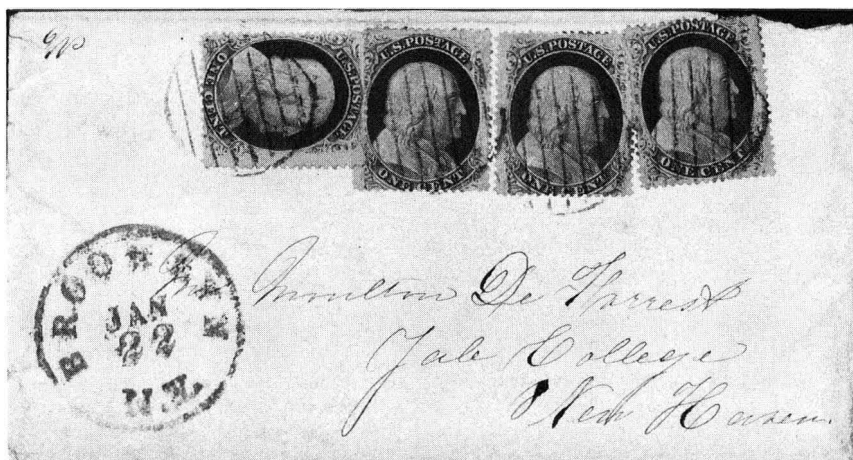 U.S. POSTAGE
ONE CENT
U.S. POSTAGE
ONE CENT
U.S. POSTAGE
ONE CENT
U.S. POSTAGE
ONE CENT
BROOKLYN
JAN
22
N.Y.
Moulton De Forrest
Yale College
New Haven.